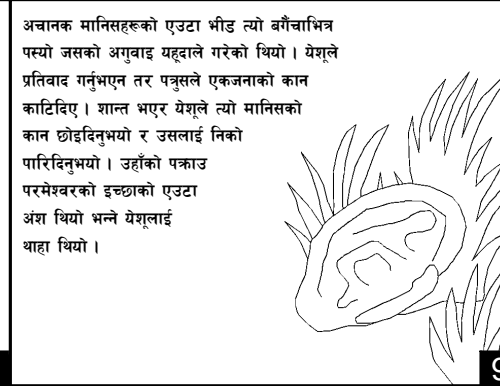 अचानक मानिसहरूको एउटा भीड त्यो बगैंचाभित्र
पस्यो जसको अगुवाइ यहूदाले गरेको थियो । येशूले
प्रतिवाद गर्नुभएन तर पत्रुसले एकजनाको कान
काटिदिए । शान्त भएर येशूले त्यो मानिसको
कान छोइदिनुभयो र उसलाई निको
पारिदिनुभयो । उहाँको पक्राउ
परमेश्वरको इच्छाको एउटा
अंश थियो भन्ने येशूलाई
थाहा थियो ।